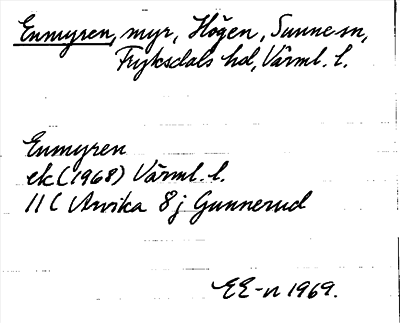 Enmyren, myr, Högen, Sunne sn,
Fryksdals hd, Värml. l.
Enmyren
ek (1968) Värml. l.
11 C Arvika 8 j Gunnerud
EE-n 1969.